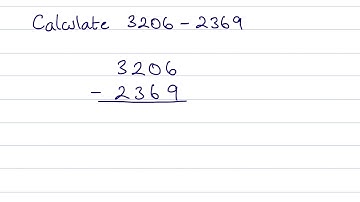 Calculate 3206 - 2369
3206
- 2369